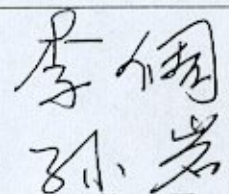 李倜
孙岩